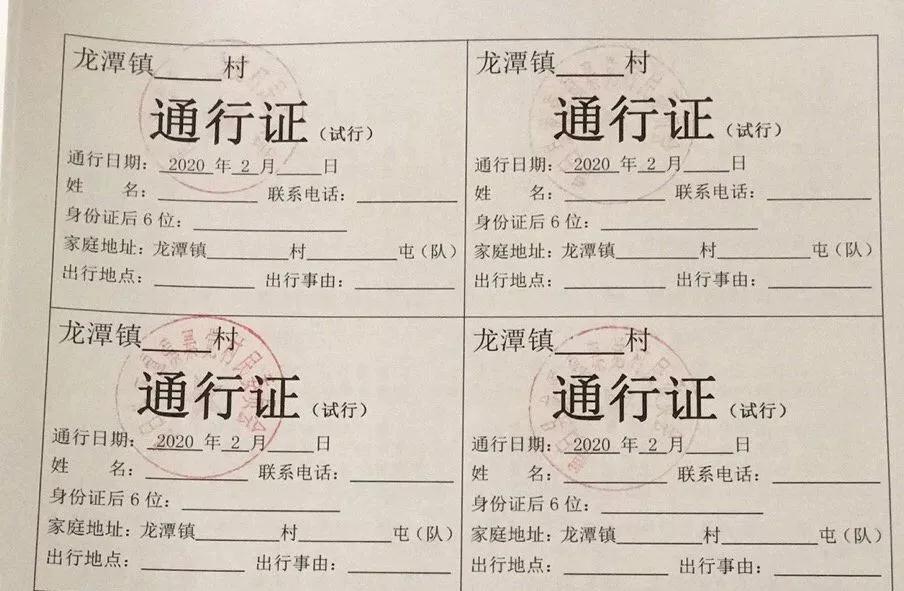 龙潭镇_____村
通行证（试行）
通行日期：2020 年 2 月____日
姓 名：________ 联系电话：________
身份证后 6 位：____________
家庭地址：龙潭镇________村________屯（队）
出行地点：________ 出行事由：________
龙潭镇_____村
通行证（试行）
通行日期：2020 年 2 月____日
姓 名：________ 联系电话：________
身份证后 6 位：____________
家庭地址：龙潭镇________村________屯（队）
出行地点：________ 出行事由：________
龙潭镇_____村
通行证（试行）
通行日期：2020 年 2 月____日
姓 名：________ 联系电话：________
身份证后 6 位：____________
家庭地址：龙潭镇________村________屯（队）
出行地点：________ 出行事由：________
龙潭镇_____村
通行证（试行）
通行日期：2020 年 2 月____日
姓 名：________ 联系电话：________
身份证后 6 位：____________
家庭地址：龙潭镇________村________屯（队）
出行地点：________ 出行事由：________